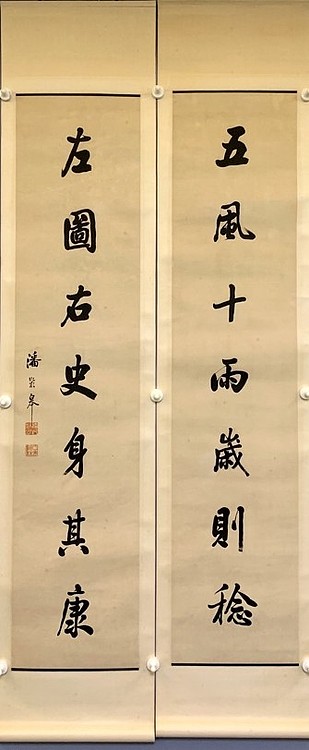 五風十雨歲則稔
左圖右史身其康
潘齡皋